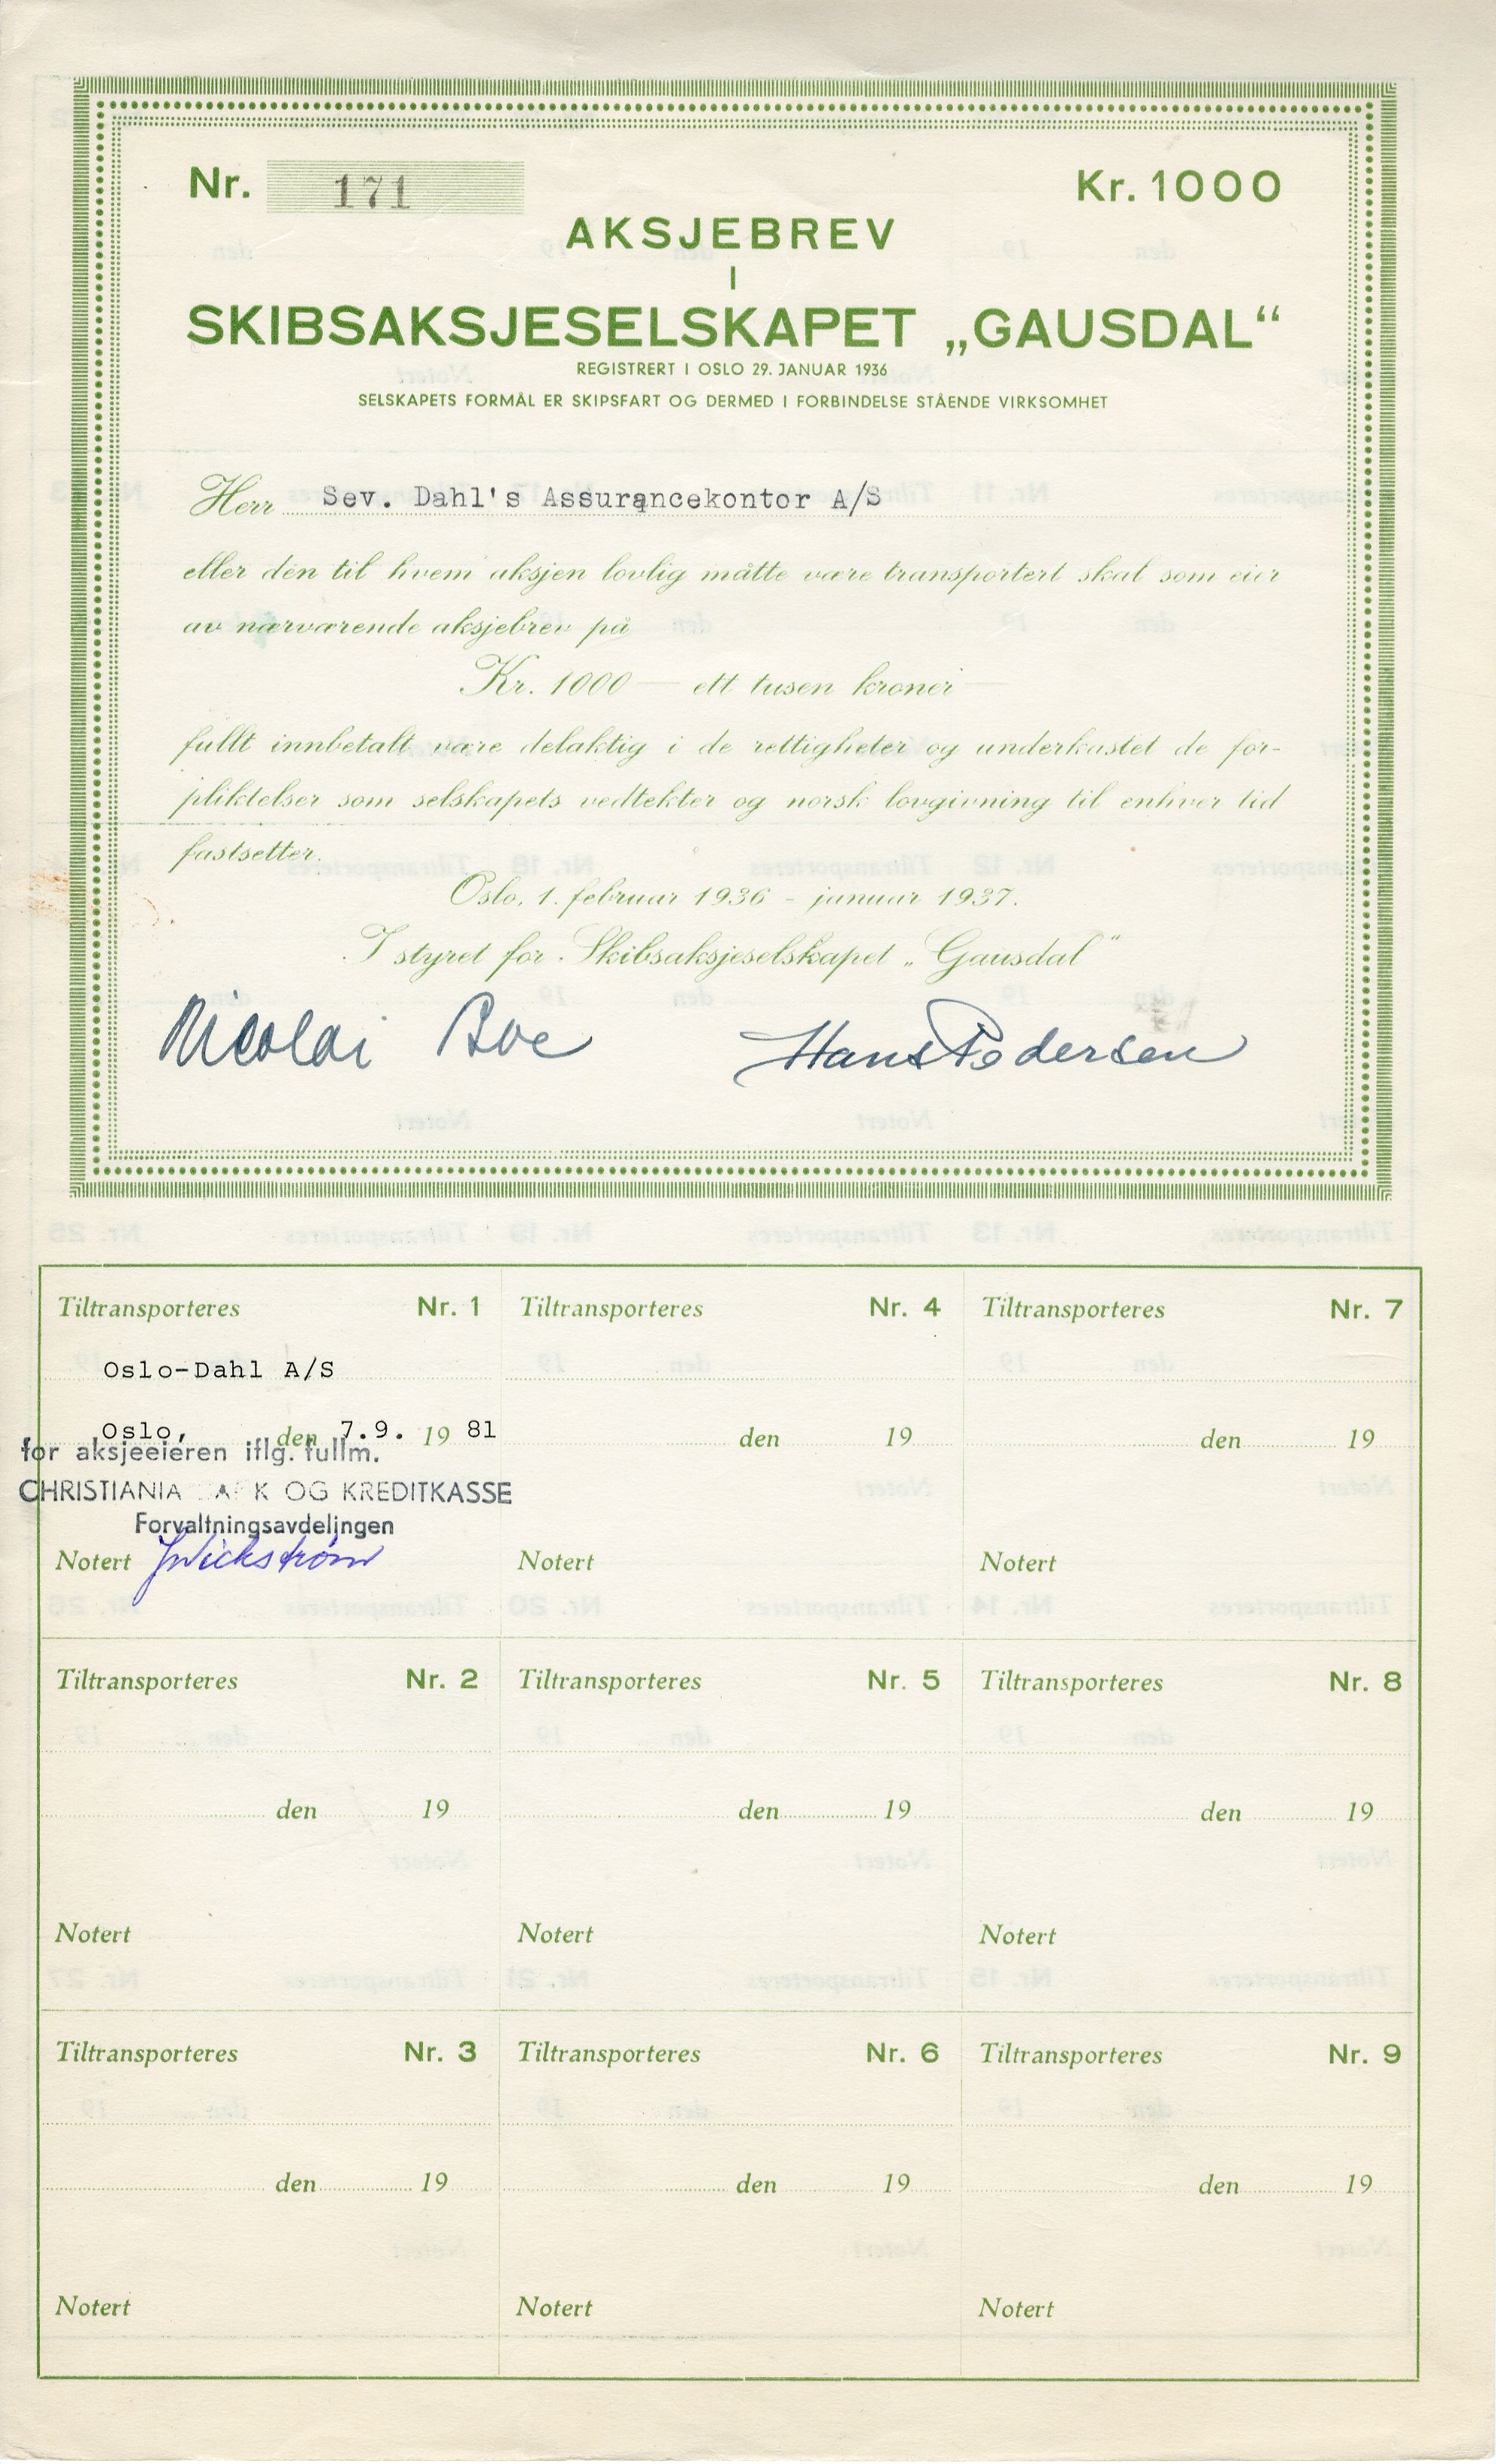 Nr. 171
Kr. 1000
AKSJEBREV
I
SKIBSAKSJESELSKAPET „GAUSDAL“
REGISTRERT I OSLO 29. JANUAR 1936
SELSKAPETS FORMÅL ER SKIPSFART OG DERMED I FORBINDELSE STÅENDE VIRKSOMHET
Herr Sev. Dahl's Assurancekontor A/S
eller den til hvem aksjen lovlig måtte være transportert skal som eier
av nærværende aksjebrev på
Kr. 1000 — ett tusen kroner —
fullt innbetalt være delaktig i de rettigheter og underkastet de for-
pliktelser som selskapets vedtekter og norsk lovgivning til enhver tid
fastsetter.
Oslo, 1. februar 1936 - januar 1937.
I styret for Skibsaksjeselskapet „Gausdal“
Nicolai Boe Hans Pedersen
Tiltransporteres Nr. 1
Oslo-Dahl A/S
Oslo, den 7.9. 19 81
for aksjeeieren iflg. fullm.
CHRISTIANIA BANK OG KREDITKASSE
Forvaltningsavdelingen
Notert Wickstrøm
Tiltransporteres Nr. 4
den 19
Notert
Tiltransporteres Nr. 7
den 19
Notert
Tiltransporteres Nr. 2
den 19
Notert
Tiltransporteres Nr. 5
den 19
Notert
Tiltransporteres Nr. 8
den 19
Notert
Tiltransporteres Nr. 3
den 19
Notert
Tiltransporteres Nr. 6
den 19
Notert
Tiltransporteres Nr. 9
den 19
Notert